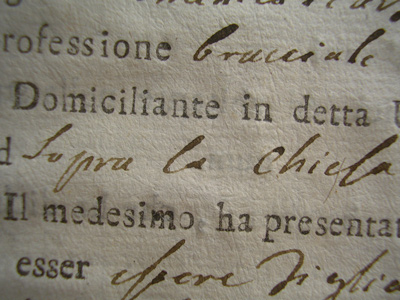 rofessione bracciale
Domiciliante in detta
Sopra la Chiesa
Il medesimo ha presentat
esser essere figlia